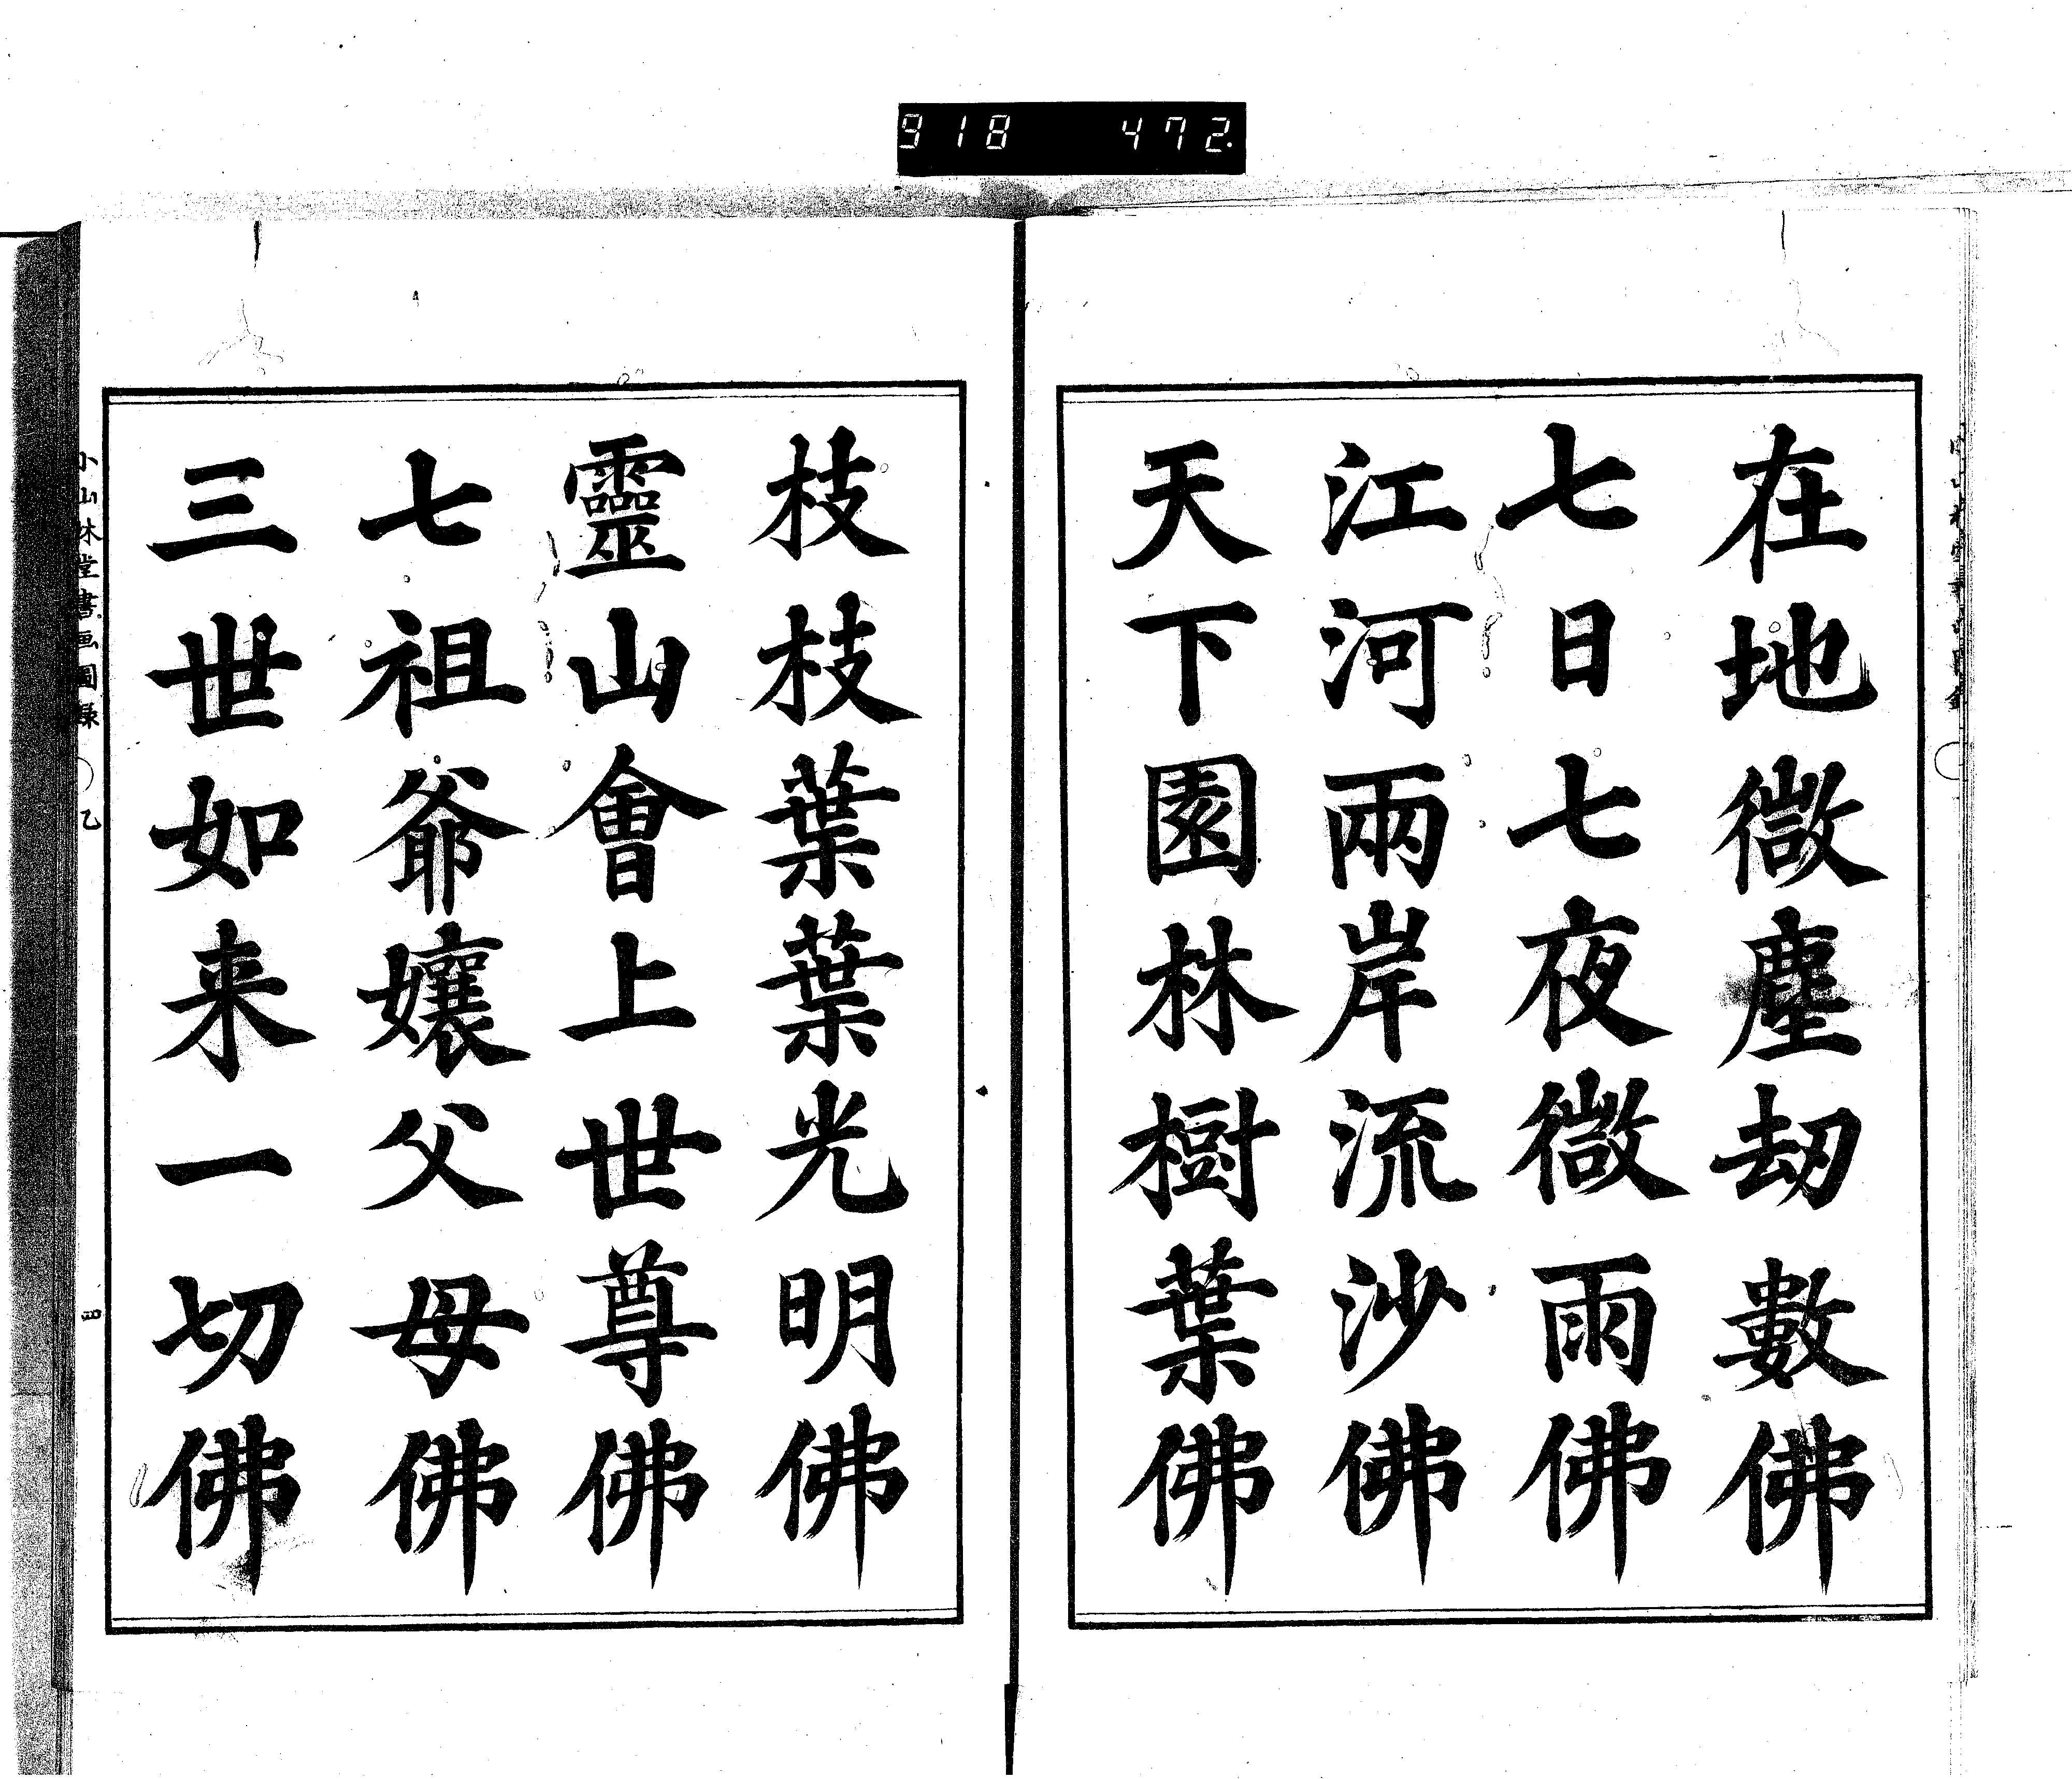 918 472.
在地微塵劫數佛
七日七夜微雨佛
江河兩岸流沙佛
天下園林樹葉佛
枝枝葉葉光明佛
靈山會上世尊佛
七祖爺孃父母佛
三世如来一切佛
小山林堂書画圖録
乙
四